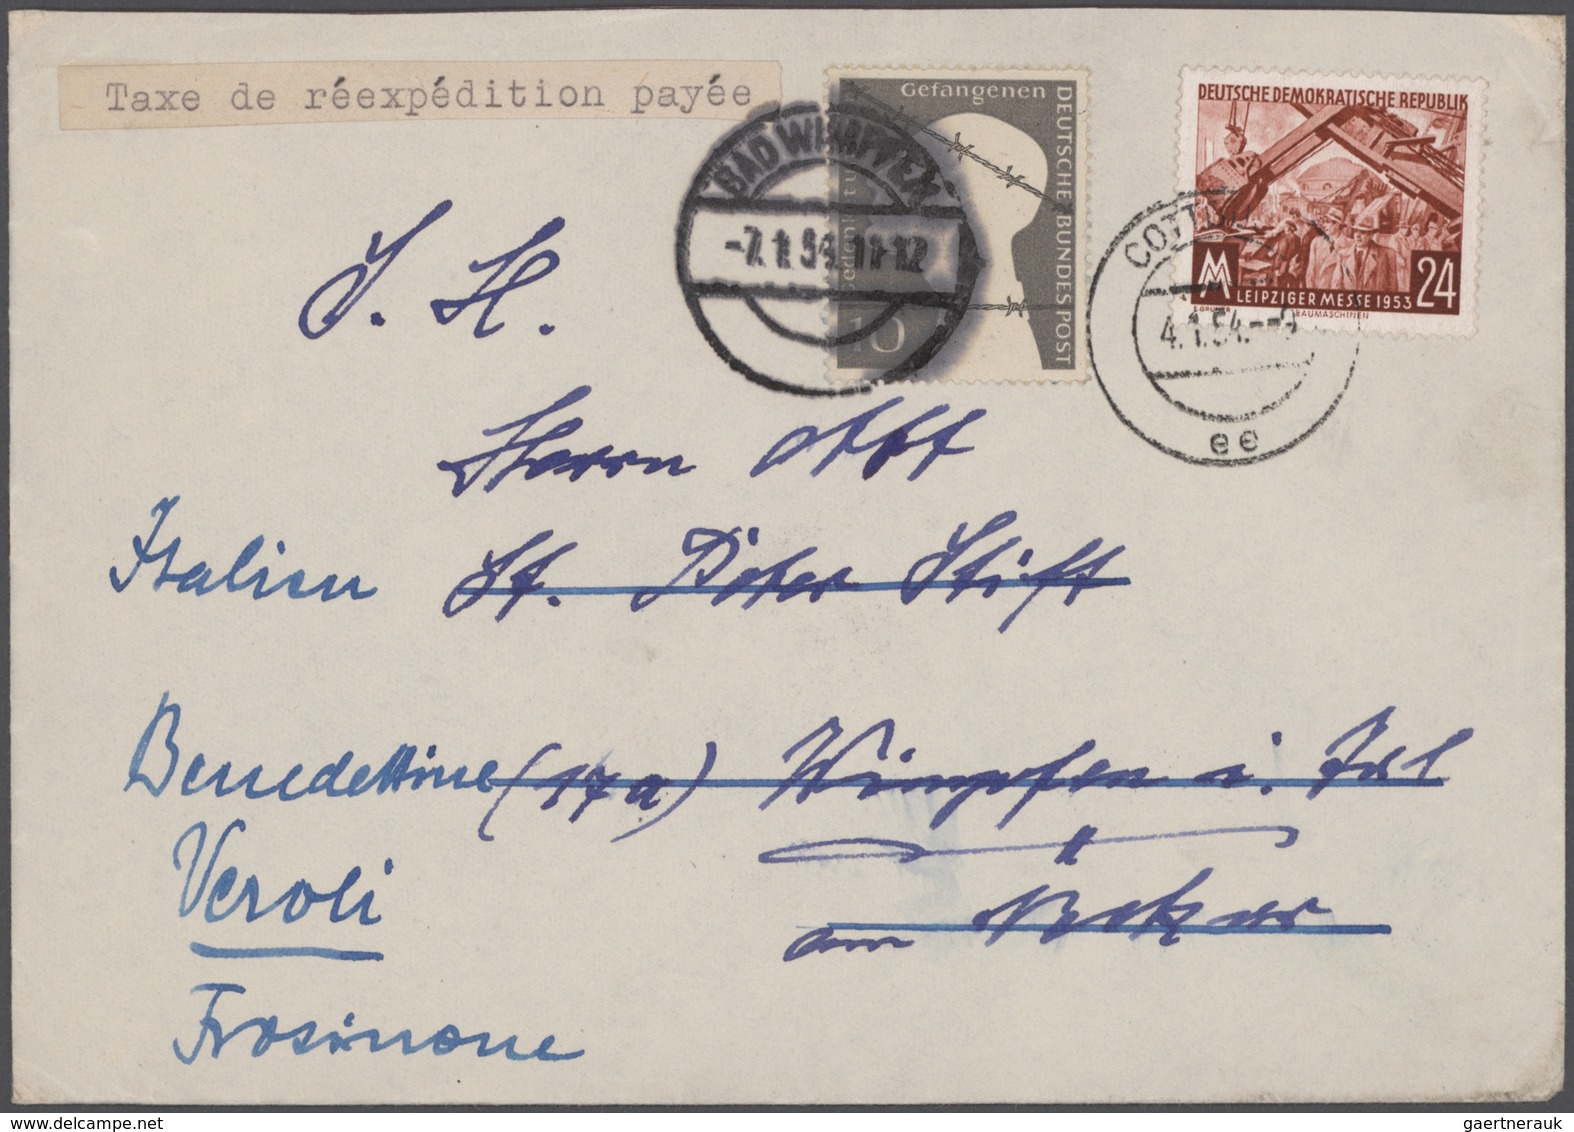 Taxe de réexpédition payée
Gefangenen
DEUTSCHE BUNDESPOST
10
BAD WIMPFEN
-7.1.54.11-12
DEUTSCHE DEMOKRATISCHE REPUBLIK
LEIPZIGER MESSE 1953 24
BAUMASCHINEN
4.1.54.--9
ee
S. H.
Herrn Abt
Italien St. Peter Stift
Benedettine (17a) Wimpfen i. Tal
Veroli
am Neckar
Frosinone
gaertnerauk